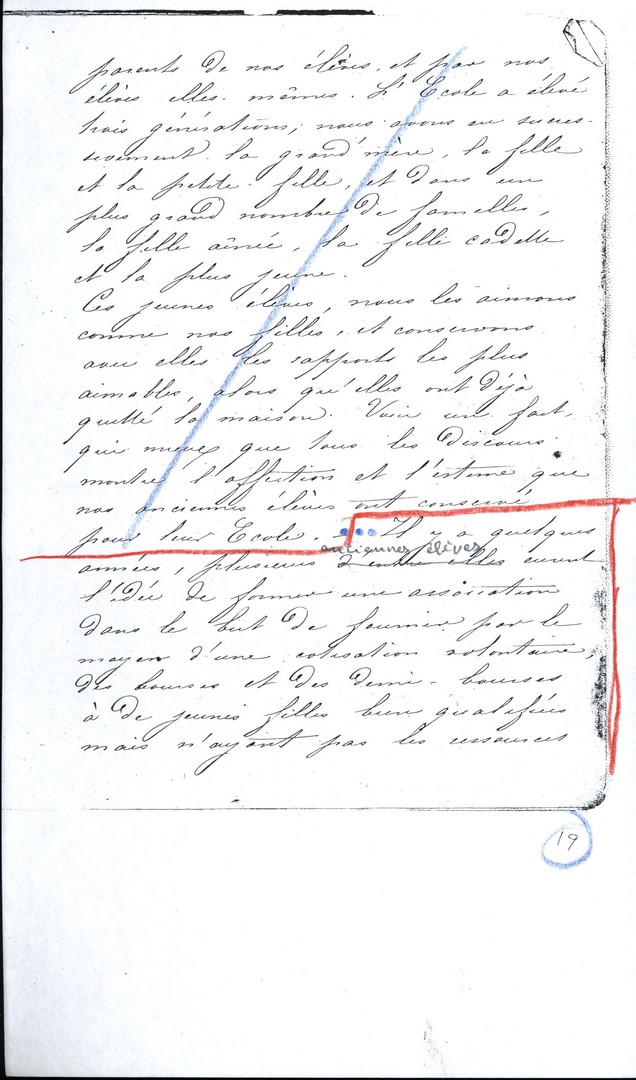 parents de nos élèves, et par nos
élèves elles-mêmes. L'Ecole a élevé
trois générations; nous avons eu succes-
sivement la grand'mère, la fille
et la petite-fille, et dans un
plus grand nombre de familles,
la fille aînée, la fille cadette
et la plus jeune.
Ces jeunes élèves, nous les aimons
comme nos filles, et conservons
avec elles les rapports les plus
aimables, alors qu'elles ont déjà
quitté la maison. Voici un fait,
qui mieux que tous les discours
montre l'affection et l'estime que
nos anciennes élèves ont conservé
pour leur Ecole. ... Il y a quelques
anciennes élèves
années, plusieurs d'entre elles eurent
l'idée de former une association
dans le but de fournir par le
moyen d'une cotisation volontaire,
des bourses et des demi-bourses
à de jeunes filles bien qualifiées
mais n'ayant pas les ressources
19